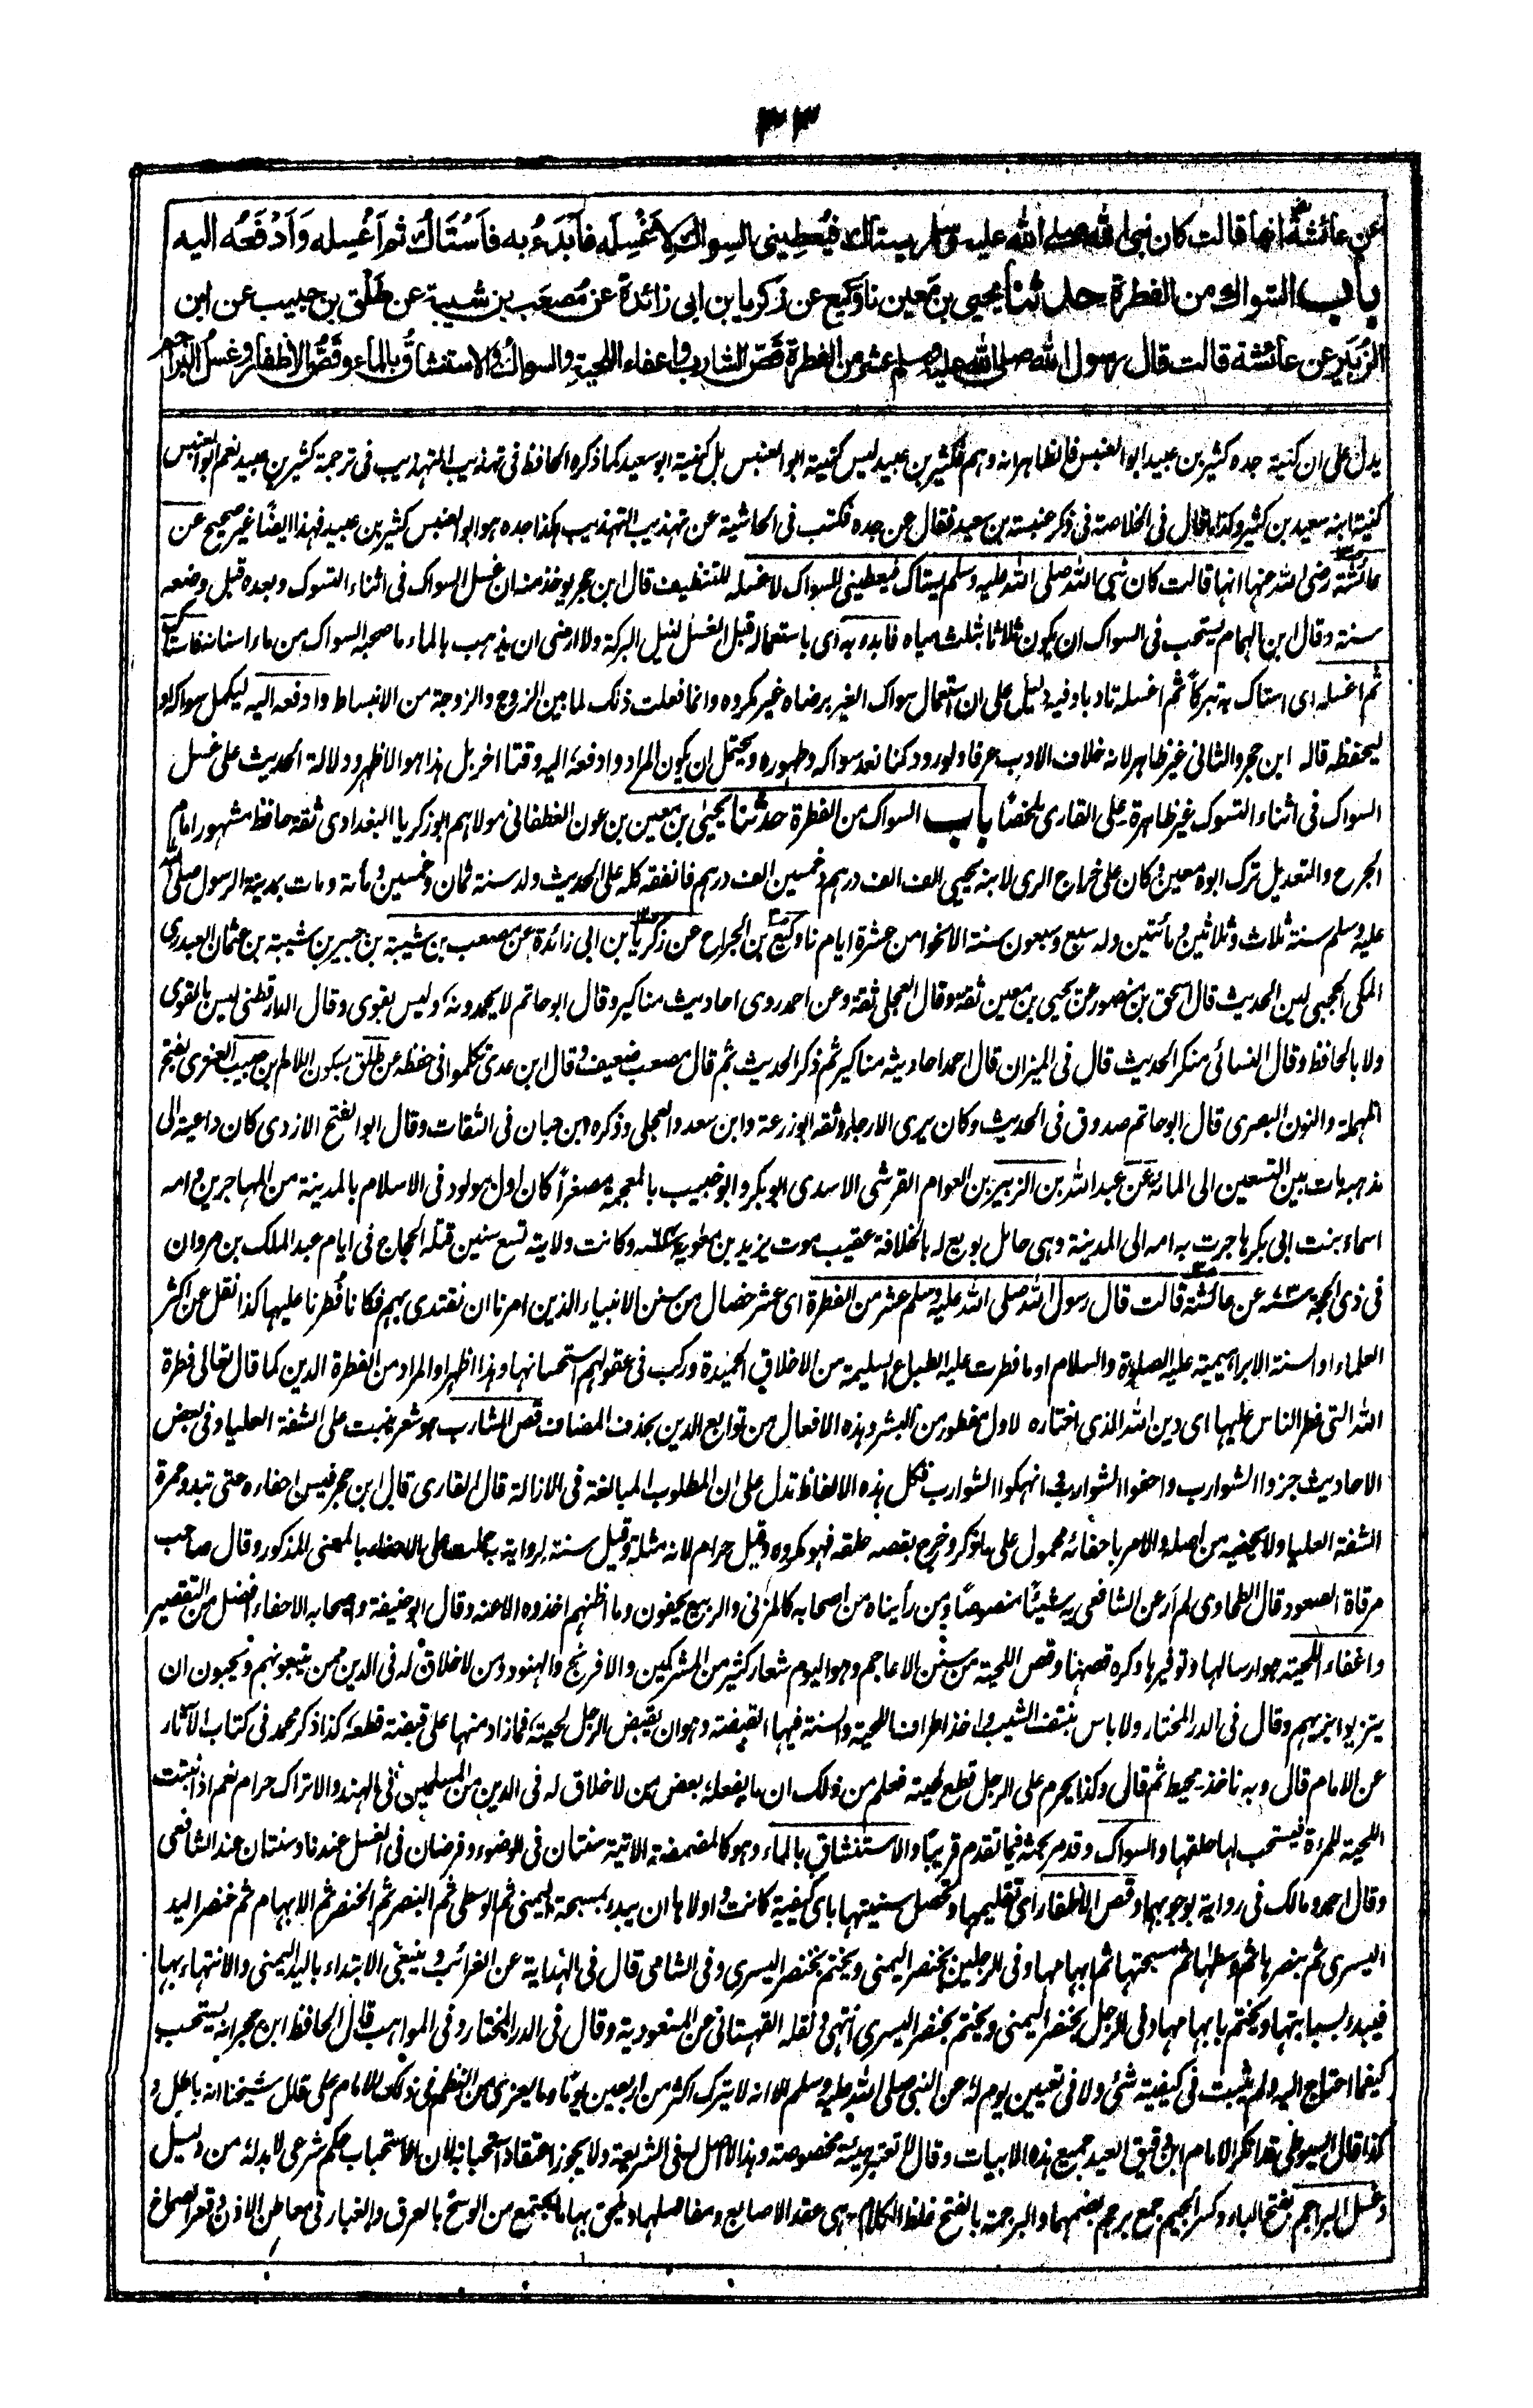 ٣٣
عن عائشة انها قالت كان نبي الله صلى الله عليه وسلم يستاك فيُعطِيني السِواك لاَغْسِلَه فاَبْدَءُ به فاَسْتَاكُ ثم اَغْسِله وَاَدْفَعُه اليه
باب السواك من الفطرة حدثنا يحيى بن معين نا وكيع عن زكريا بن ابى زائدة عن مُصعَب بن شيبة عن طَلْق بن حبيب عن ابن
الزُبَيرِ عن عائشة قالت قال رسول الله صلى الله عليه وسلم عشر من الفطرة قَصّ الشارب واعفاء اللحيةِ والسواكُ والاستنشاقُ بالماء وقَصُّ الاظفار وغسلُ البَراجم
يدل على ان كنية جده كثير بن عبيد ابو العنبس فالظاهر انه وهم فكثير بن عبيد ليس كنيته ابو العنبس بل كنيته ابو سعيد كما ذكره الحافظ فى تهذيب التهذيب فى ترجمة كثير بن عبيد نعم ابو العنبس
كنية ابنه سعيد بن كثير وكذا ما قال فى الخلاصة فى ذكر عنبسة بن سعيد فقال عن جده فكتب فى الحاشية عن تهذيب التهذيب هكذا جده هو ابو العنبس كثير بن عبيد فهذا ايضًا غير صحيح عن
عائشة رضى الله عنها انها قالت كان نبى الله صلى الله عليه وسلم يستاك فيعطينى السواك لاغسله للتنظيف قال ابن حجر يوخذ منه ان غسل السواك فى اثناء التسوك وبعده قبل وضعه
سنة وقال ابن الهمام يستحب فى السواك ان يكون ثلاثا بثلث مياه فابدء به اى باستعماله قبل الغسل لنيل البركة ولا ارضى ان يذهب بالماء ما صحبه السواك من ماء اسنانه فاستاك
ثم اغسله اى استاك به تبركاً ثم اغسله تادبا وفيه دليل على ان استعمال سواك الغير برضاه غير مكروه وانما فعلت ذلك لما بين الزوج والزوجة من الانبساط وادفعه اليه ليكمل سواكه او
ليحفظه قاله ابن حجر والثانى غير ظاهر لانه خلاف الادب عرفا ولورود كنا نعد سواكه وطهوره ويحتمل ان يكون المراد وادفعه اليه وقتا اخر بل هذا هو الاظهر ودلالة الحديث على غسل
السواك فى اثناء التسوك غير ظاهرة على القارى ملخصًا باب السواك من الفطرة حدثنا يحيىٰ بن معين بن عون الغطفانى مولاهم ابو زكريا البغدادى ثقة حافظ مشهور امام
الجرح والتعديل ترك ابوه معين وكان على خراج الرى لابنه يحيى الف الف درهم وخمسين الف درهم فانفقه كله على الحديث ولد سنة ثمان وخمسين ومأئة ومات بمدينة الرسول صلى الله
عليه وسلم سنة ثلاث وثلاثين ومأتين وله سبع وسبعون سنة الا نحوا من عشرة ايام نا وكيع بن الجراح عن زكريا بن ابى زائدة عن مصعب بن شيبة بن جبير بن شيبة بن عثمان العبدرى
المكى الحجبى لين الحديث قال اسحق بن منصور عن يحيى بن معين ثقة وقال العجلى ثقة وعن احمد روى احاديث مناكير وقال ابو حاتم لا يحمدونه وليس بقوى وقال الدارقطنى ليس بالقوى
ولا بالحافظ وقال النسائى منكر الحديث قال فى الميزان قال احمد احاديثه مناكير ثم ذكر الحديث ثم قال مصعب ضعيف وقال ابن عدى تكلموا فى حفظه عن طلق بسكون اللام بن حبيب العنزى بفتح
المهملة والنون البصرى قال ابو حاتم صدوق فى الحديث وكان يرى الارجاء وثقه ابو زرعة وابن سعد والعجلى وذكره ابن حبان فى الثقات وقال ابو الفتح الازدى كان داعية الى
مذهبه مات بين التسعين الى المائة عن عبد الله بن الزبير بن العوام القرشى الاسدى ابو بكر وابو خبيب بالمعجمة مصغراً كان اول مولود فى الاسلام بالمدينة من المهاجرين وامه
اسماء بنت ابى بكر هاجرت به امه الى المدينة وهى حامل بويع له بالخلافة عقيب موت يزيد بن معوية وكانت ولايته تسع سنين قتله الحجاج فى ايام عبد الملك بن مروان
فى ذى الحجة سنة ٧٣ عن عائشة قالت قال رسول الله صلى الله عليه وسلم عشر من الفطرة اى عشر خصال من سنن الانبياء الذين امرنا ان نقتدى بهم فكانا فُطرنا عليها كذا نقل عن اكثر
العلماء او السنة الابراهيمية عليه الصلوة والسلام او ما فطرت عليه الطباع السليمة من الاخلاق الحميدة وركب فى عقولهم استحسانها وهذا اظهر والمراد من الفطرة الدين كما قال تعالى فطرة
الله التى فطر الناس عليها اى دين الله الذى اختاره لاول مفطور من البشر وهذه الافعال من توابع الدين بحذف المضاف قص الشارب هو شعر ينبت على الشفة العليا وفى بعض
الاحاديث جزوا الشوارب واحفوا الشوارب وفى انهكوا الشوارب فكل هذه الالفاظ تدل على ان المطلوب المبالغة فى الازالة قال القارى قال ابن حجر فيسن احفاءه حتى تبدو حمرة
الشفة العليا ولا يحفيه من اصله والامر باحفائه محمول على ما ذكر وخرج بقصه حلقه فهو مكروه وقيل حرام لانه مثلة وقيل سنة لرواية حملت على الاحفاء بالمعنى المذكور وقال صاحب
مرقاة الصعود قال الطحاوى لم ار عن الشافعى فيه شيئًا منصوصًا ومن رأيناه من اصحابه كالمزنى والربيع يحفون وما اظنهم اخذوه الا عنه وقال ابو حنيفة واصحابه الاحفاء افضل من التقصير
واعفاء اللحية هو ارسالها وتوفيرها وكره قصها وقص اللحية من سنن الاعاجم وهو اليوم شعار كثير من المشركين والافرنج والهنود ومن لا خلاق له فى الدين ممن يتبعونهم ويحبون ان
يتزيوا بزيهم وقال فى الدر المختار ولا باس بنتف الشيب واخذ اطراف اللحية والسنة فيها القبضة وهو ان يقبض الرجل لحيته فما زاد منها على قبضة قطعه كذا ذكر محمد فى كتاب الآثار
عن الامام قال وبه ناخذ محيط ثم قال وكذا يحرم على الرجل قطع لحيته فعلم من ذلك ان ما يفعله بعض من لا خلاق له فى الدين من المسلمين فى الهند والاتراك حرام نعم اذا نبتت
اللحية للمرءة فيستحب لها حلقها والسواك وقد مر بحثه فيما تقدم قريبًا والاستنشاق بالماء وهو كالمضمضة الاتية سنتان فى الوضوء وفرضان فى الغسل عندنا وسنتان عند الشافعى
وقال احمد ومالك فى رواية بوجوبهما وقص الاظفار اى تقليمها وتحصل سنيتها باى كيفية كانت واولاها ان يبدء بمسبحة اليمنى ثم الوسطى ثم البنصر ثم الخنصر ثم الابهام ثم خنصر اليد
اليسرى ثم بنصرها ثم وسطاها ثم مسبحتها ثم ابهامها وفى الرجلين بخنصر اليمنى ويختم بخنصر اليسرى وفى الشامى قال فى الهداية عن الغرائب وينبغى الابتداء باليد اليمنى والانتهاء بها
فيبدء بسبابتها ويختم بابهامها وفى الرجل بخنصر اليمنى ويختم بخنصر اليسرى انتهى ونقله القهستانى عن المسعودية وقال فى الدر المختار وفى المواهب قال الحافظ ابن حجر انه يستحب
كيفما احتاج اليه ولم يثبت فى كيفيته شئ ولا فى تعيين يوم له عن النبى صلى الله عليه وسلم الا انه لا يترك اكثر من اربعين يومًا وما يعزى من النظم فى ذلك للامام على قال شيخنا انه باطل و
كذا قال السيوطى قد انكر الامام ابن دقيق العيد جميع هذه الابيات وقال لا تعتبر هيئة مخصوصة وهذا لا اصل له فى الشريعة ولا يجوز اعتقاد استحبابه لان الاستحباب حكم شرعى لا بد له من دليل
وغسل البراجم بفتح الباء وكسر الجيم جمع برجم بضمهما والبرجمة بالفتح غلظ الكلام هى عقد الاصابع ومفاصلها ويلحق بها ما يجتمع من الوسخ بالعرق والغبار فى معاطف الاذن وقعر الصماخ